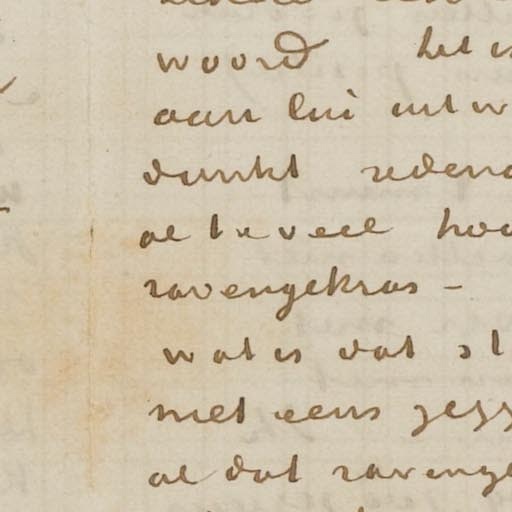 woord het is
aan lui uit w
dunkt redena
al te veel hoo
ravengekras -
wat is dat st
met eens zegg
al dat ravenge